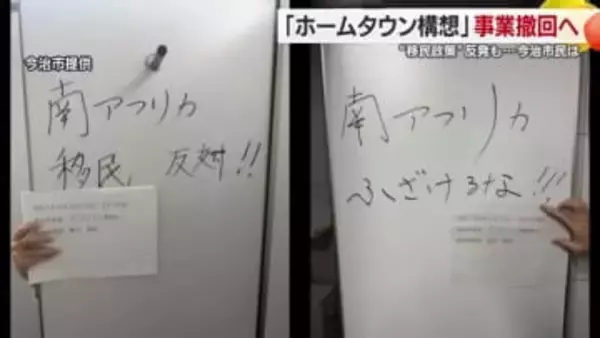 「ホームタウン構想」事業撤回へ
"移民政策"反発も…今治市民は
今治市提供
南アフリカ
移民 反対!!
南アフリカ
ふざけるな!!!